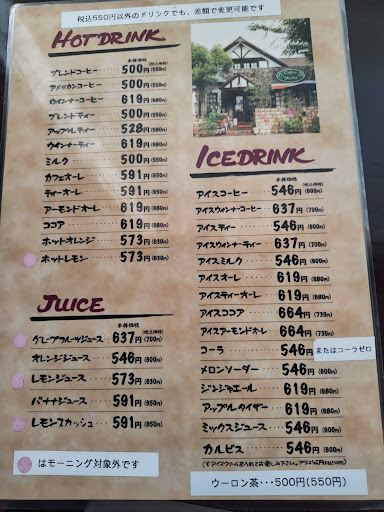 税込550円以外のドリンクでも、差額で変更可能です
HOTDRINK
本体価格 (税込価格)
ブレンドコーヒー 500円(550円)
アメリカンコーヒー 500円(550円)
ウインナーコーヒー 619円(680円)
ブレンドティー 500円(550円)
アップルティー 528円(580円)
ウインナーティー 619円(680円)
ミルク 500円(550円)
カフェオーレ 591円(650円)
ティーオーレ 591円(650円)
アーモンドオーレ 619円(680円)
ココア 619円(680円)
ホットオレンジ 573円(630円)
ホットレモン 573円(630円)
JUICE
本体価格 (税込価格)
グレープフルーツジュース 637円(700円)
オレンジジュース 546円(600円)
レモンジュース 573円(630円)
バナナジュース 591円(650円)
レモンスカッシュ 591円(650円)
はモーニング対象外です
ICEDRINK
本体価格 (税込価格)
アイスコーヒー 546円(600円)
アイスウィンナーコーヒー 637円(700円)
アイスティー 546円(600円)
アイスウィンナーティー 637円(700円)
アイスミルク 546円(600円)
アイスオーレ 619円(680円)
アイスティーオーレ 619円(680円)
アイスココア 664円(730円)
アイスアーモンドオーレ 664円(730円)
コーラ 546円 またはコーラゼロ
メロンソーダー 546円(600円)
ジンジャエール 619円(680円)
アップルタイザー 619円(680円)
ミックスジュース 546円(600円)
カルピス 546円(600円)
ウーロン茶・・・500円(550円)